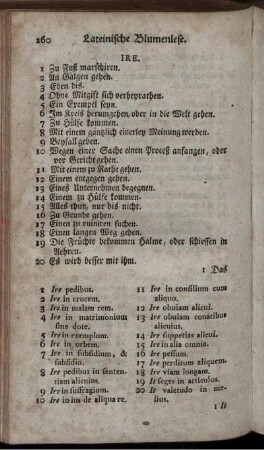 260 Lateinische Blumenlese.
IRE.
1 Zu Fuß marschiren.
2 An Galgen gehen.
3 Eben dis.
4 Ohne Mitgift sich verheyrathen.
5 Ein Exempel seyn.
6 Im Kreis herumgehen, oder in die Welt gehen.
7 Zu Hülfe kommen.
8 Mit einem gänzlich einerley Meinung werden.
9 Beyfall geben.
10 Wegen einer Sache einen Proceß anfangen, oder
vor Gericht gehen.
11 Mit einem zu Rathe gehen.
12 Einem entgegen gehen.
13 Eines Unternehmen begegnen.
14 Einem zu Hülfe kommen.
15 Alles thun, nur dis nicht.
16 Zu Grunde gehen.
17 Einen zu ruiniren suchen.
18 Einen langen Weg gehen.
19 Die Früchte bekommen Halme, oder schiessen in
Aehren.
20 Es wird besser mit ihm.
1 Das
1 Ire pedibus.
2 Ire in crucem.
3 Ire in malam rem.
4 Ire in matrimonium
sine dote.
5 Ire in exemplum.
6 Ire in orbem.
7 Ire in subsidium, &
subsidio.
8 Ire pedibus in senten-
tiam alicuius.
9 Ire in suffragium.
10 Ire in ius de aliqua re.
11 Ire in consilium cum
aliquo.
12 Ire obuiam alicui.
13 Ire obuiam conatibus
alicuius.
14 Ire suppetias alicui.
15 Ire in alia omnia.
16 Ire pessum.
17 Ire perditum aliquem.
18 Ire viam longam.
19 It seges in articulos.
20 It valetudo in me-
lius.
1 It